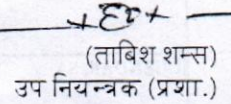 (ताबिश शम्स)
उप नियन्त्रक (प्रशा.)